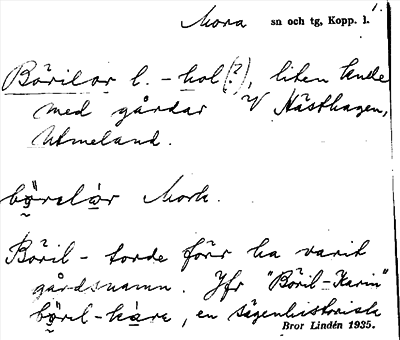 Mora sn och tg, Kopp. l. 1.
Börilor l. -hol(?), liten kulle
med gårdar V Hästhagen,
Utmeland.
bö̰rełár Mork.
Böril- torde förr ha varit
gårdsnamn. Jfr "Böril-Karin"
bö̰ril-káre, en sägenhistorisk
Bror Lindén 1935.